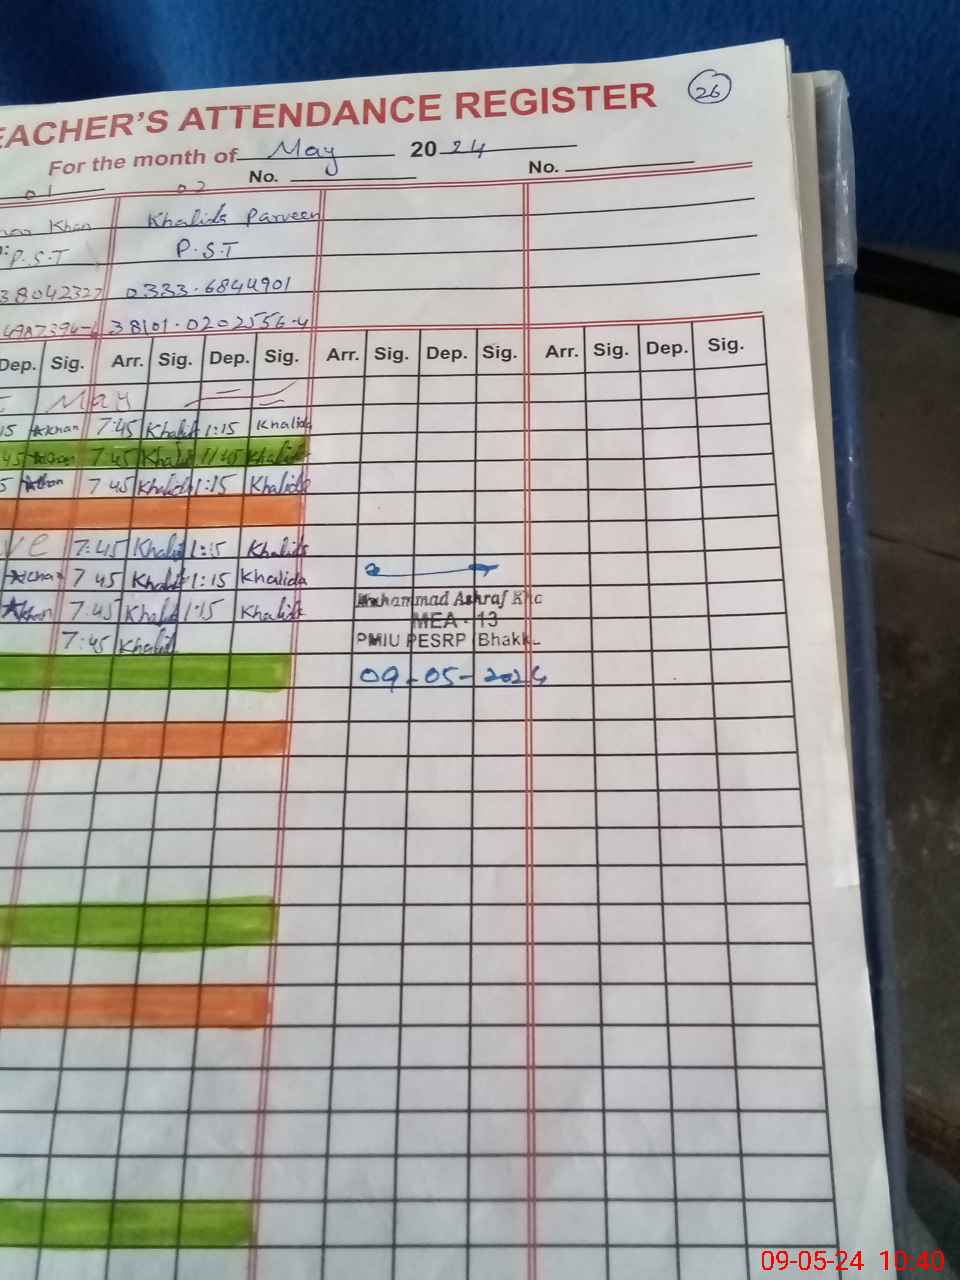 EACHER'S ATTENDANCE REGISTER 26
For the month of May 2024
No. No.
01 02
Khan Khalida Parveen
P.S.T P.S.T
0333.6844901
38101.0202556-4
Dep. Sig. Arr. Sig. Dep. Sig. Arr. Sig. Dep. Sig. Arr. Sig. Dep. Sig.
May
15 Akhan 7:45 Khalid 1:15 Khalida
45 7 45 Khalid 11:45 Khalida
5 Akhan 7 45 Khalida 1:15 Khalida
ve 7:45 Khalid 1:15 Khalida
Akhan 7 45 Khalid 1:15 Khalida
Akhan 7:45 Khalid 1:15 Khalida
7:45 Khalid
Muhammad Ashraf Kha
MEA - 13
PMIU PESRP Bhakk
09-05-2024
09-05-24 10:40